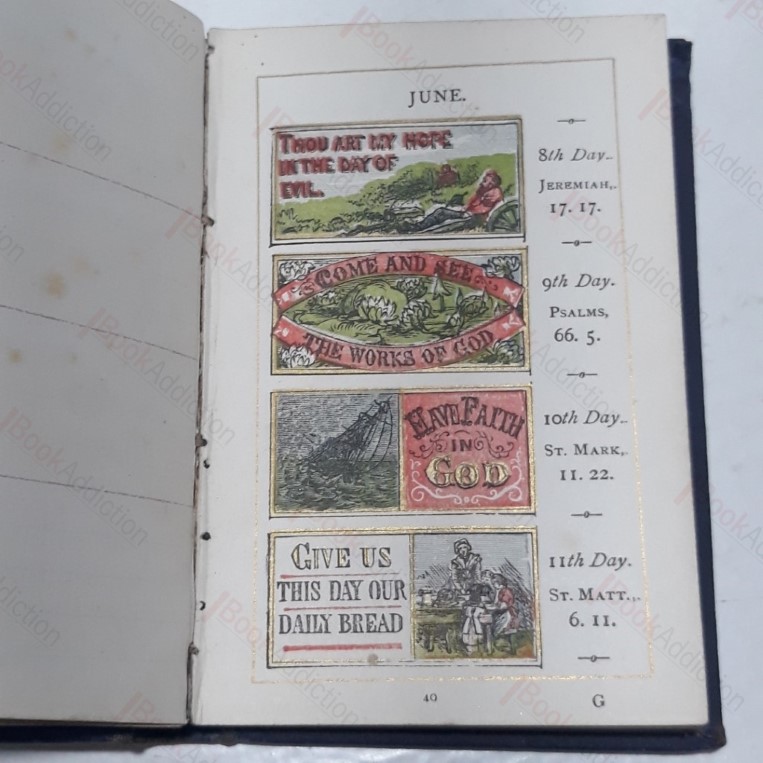 JUNE.
THOU ART MY HOPE
IN THE DAY OF
EVIL.
8th Day.
JEREMIAH,
17. 17.
COME AND SEE
THE WORKS OF GOD
9th Day.
PSALMS,
66. 5.
HAVE FAITH
IN
GOD
10th Day.
ST. MARK,
11. 22.
GIVE US
THIS DAY OUR
DAILY BREAD
11th Day.
ST. MATT.,
6. 11.
40
G
BookAddiction